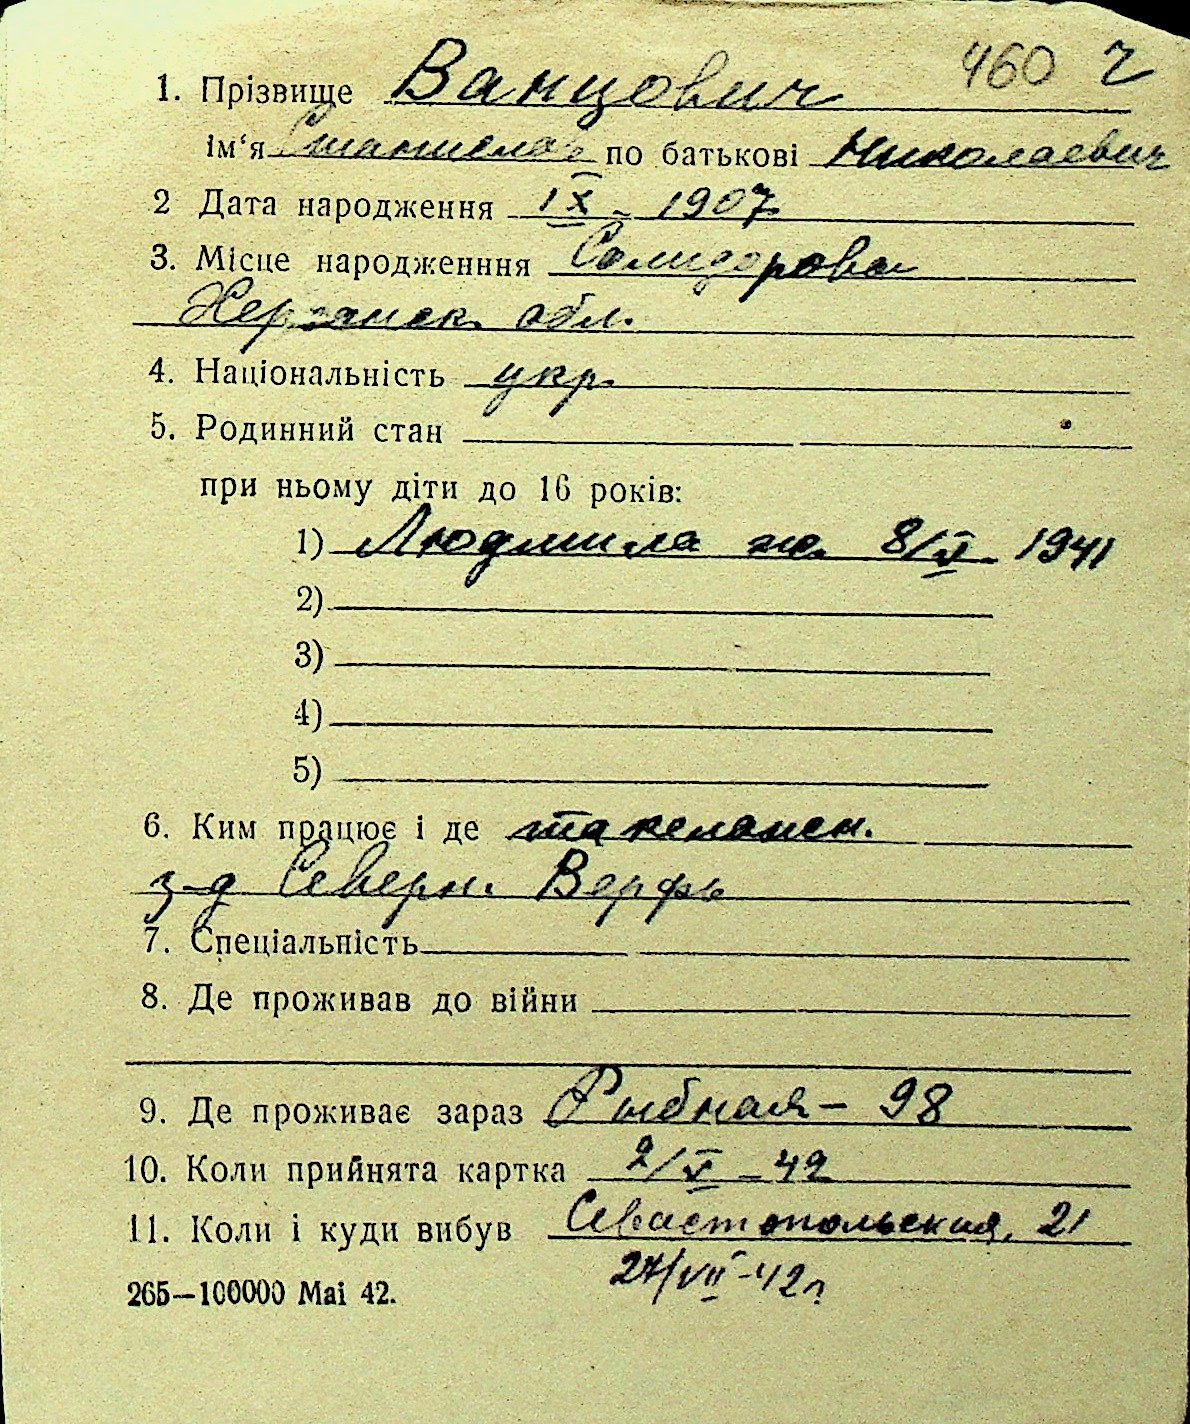 460 ч
1. Прізвище Ванцович
Ім‘я Станислав по батькові Николаевич
2 Дата народження IX - 1907
3. Місце народженння
Херсанск. обл.
4. Національність укр.
5. Родинний стан
при ньому діти до 16 років:
1) Людмила ж. 8/V 1941
2)
3)
4)
5)
6. Ким працює і де такелажн.
з-д Северн. Верфь
7. Спеціальність
8. Де проживав до війни
9. Де проживає зараз Рыбная - 98
10. Коли прийнята картка 2/V - 42
11. Коли і куди вибув Севастопольская, 21
27/VII-42 г.
265—100000 Mai 42.